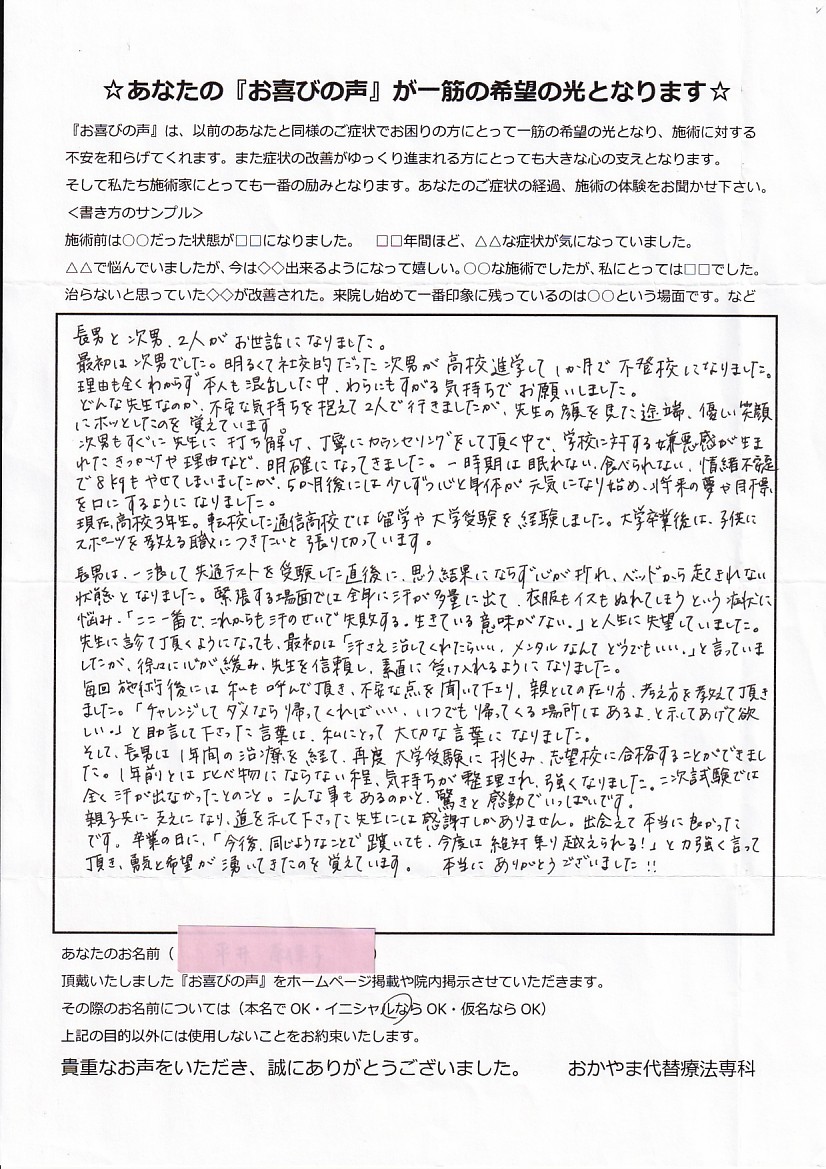 ☆あなたの『お喜びの声』が一筋の希望の光となります☆
『お喜びの声』は、以前のあなたと同様のご症状でお困りの方にとって一筋の希望の光となり、施術に対する
不安を和らげてくれます。また症状の改善がゆっくり進まれる方にとっても大きな心の支えとなります。
そして私たち施術家にとっても一番の励みとなります。あなたのご症状の経過、施術の体験をお聞かせ下さい。
＜書き方のサンプル＞
施術前は○○だった状態が□□になりました。　□□年間ほど、△△な症状が気になっていました。
△△で悩んでいましたが、今は◇◇出来るようになって嬉しい。○○な施術でしたが、私にとっては□□でした。
治らないと思っていた◇◇が改善された。来院し始めて一番印象に残っているのは○○という場面です。など
長男と次男、2人がお世話になりました。
最初は次男でした。明るくて社交的だった次男が高校進学して1か月で不登校になりました。
理由も全くわからず本人も混乱した中、わらにもすがる気持ちでお願いしました。
どんな先生なのか、不安な気持ちを抱えて2人で行きましたが、先生の顔を見た途端、優しい笑顔
にホッとしたのを覚えています。
次男もすぐに先生に打ち解け、丁寧にカウンセリングをして頂く中で、学校に対する嫌悪感が生ま
れたきっかけや理由など、明確になってきました。一時期は眠れない、食べられない、情緒不安定
で8kgもやせてしまいましたが、5か月後には少しずつ心と身体が元気になり始め、将来の夢や目標
を口にするようになりました。
現在、高校3年生。転校した通信高校では留学や大学受験を経験しました。大学卒業後は、子供に
スポーツを教える職につきたいと張り切っています。
長男は、一浪して共通テストを受験した直後に、思う結果にならず心が折れ、ベッドから起きれない
状態となりました。緊張する場面では全身に汗が多量に出て、衣服もイスもぬれてしまうという症状に
悩み、「ここ一番で、これからも汗のせいで失敗する。生きている意味がない。」と人生に失望していました。
先生に診て頂くようになっても、最初は「汗さえ治してくれたらいい、メンタルなんてどうでもいい。」と言っていま
したが、徐々に心が緩み、先生を信頼し、素直に受け入れるようになりました。
毎回施術後には私も呼んで頂き、不安な点を聞いて下さり、親としての在り方、考え方を教えて頂き
ました。「チャレンジしてダメなら帰ってくればいい、いつでも帰ってくる場所はあるよ、と示してあげて欲
しい。」と助言して下さった言葉は、私にとって大切な言葉になりました。
そして、長男は1年間の治療を経て、再度大学受験に挑み、志望校に合格することができまし
た。1年前とは比べ物にならない程、気持ちが整理され、強くなりました。二次試験では
全く汗が出なかったとのこと。こんな事もあるのかと、驚きと感動でいっぱいです。
親子共に支えになり、道を示して下さった先生には感謝しかありません。出会えて本当に良かった
です。卒業の日に、「今後、同じようなことで躓いても、今度は絶対乗り越えられる！」と力強く言って
頂き、勇気と希望が湧いてきたのを覚えています。　本当にありがとうございました!!
あなたのお名前（　）
頂戴いたしました『お喜びの声』をホームページ掲載や院内掲示させていただきます。
その際のお名前については（本名で OK・イニシャルなら OK・仮名なら OK）
上記の目的以外には使用しないことをお約束いたします。
貴重なお声をいただき、誠にありがとうございました。　おかやま代替療法専科